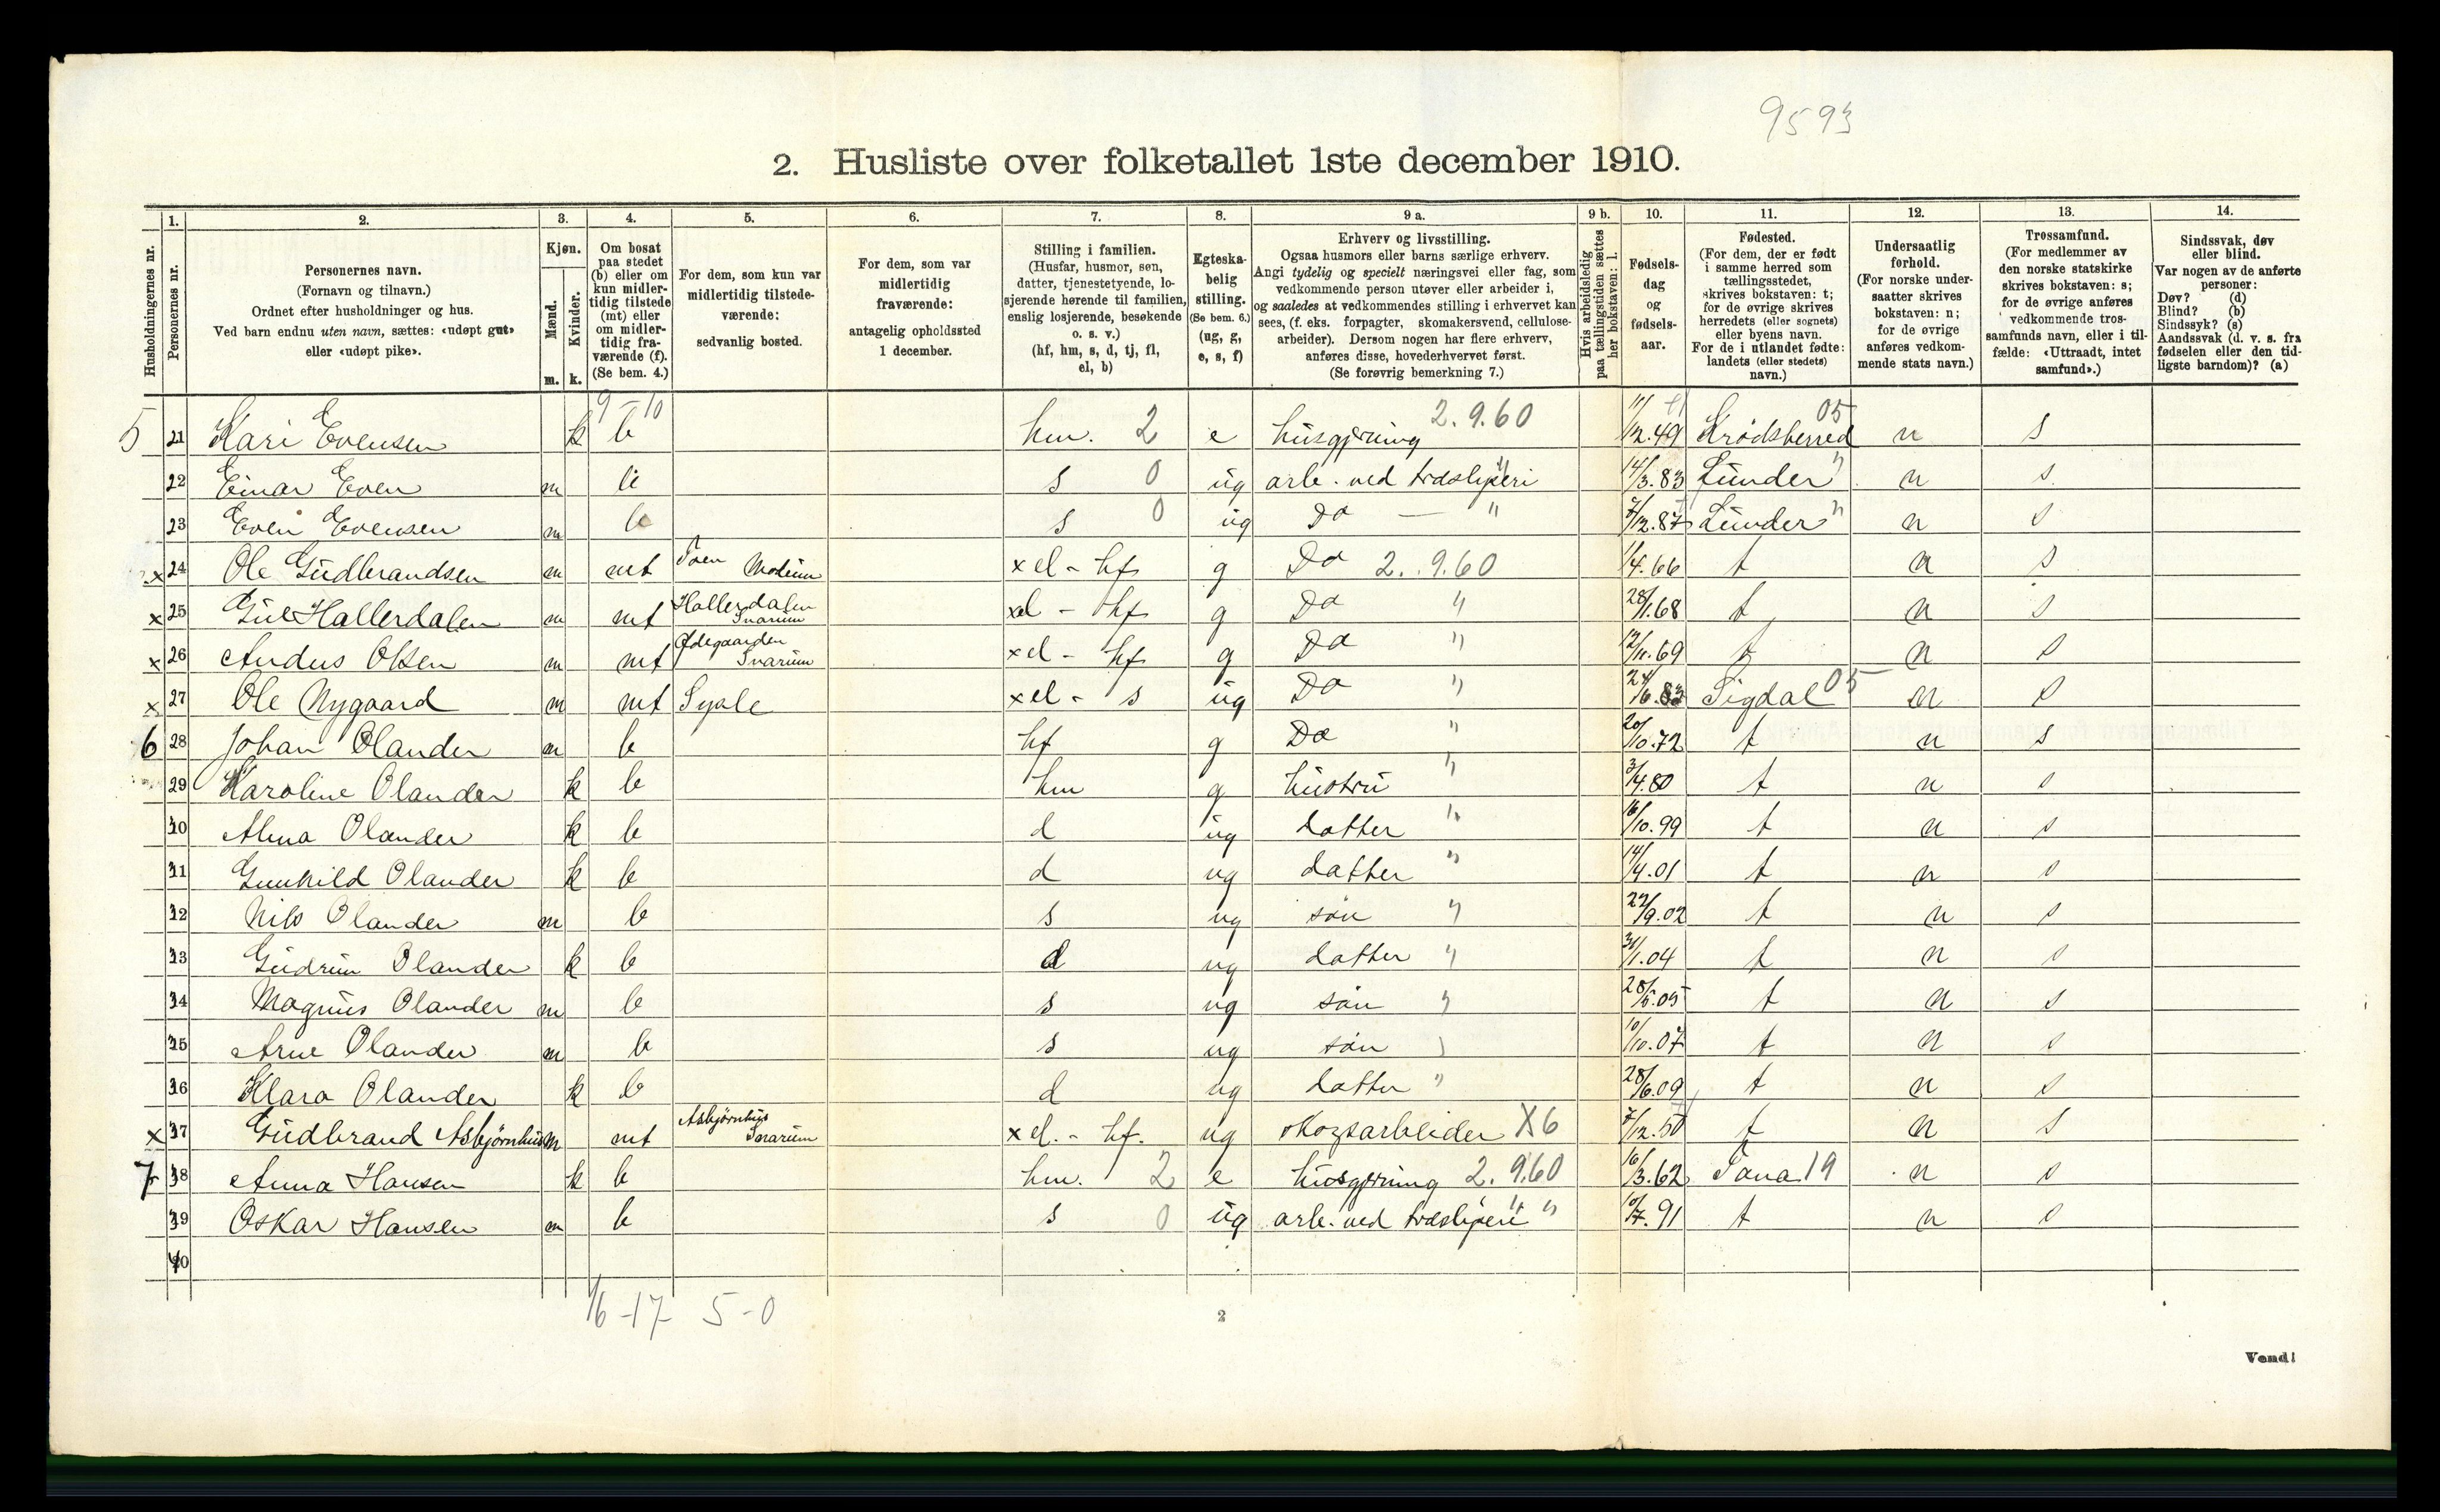 9593
2. Husliste over folketallet 1ste december 1910.
1. 2. 3. 4. 5. 6. 7. 8. 9 a. 9 b. 10. 11. 12. 13. 14.
Husholdningernes nr.
Personernes nr.
Personernes navn.
(Fornavn og tilnavn.)
Ordnet efter husholdninger og hus.
Ved barn endnu uten navn, sættes: «udøpt gut»
eller «udøpt pike».
Kjøn.
Mænd.
Kvinder.
m. k.
Om bosat
paa stedet
(b) eller om
kun midler-
tidig tilstede
(mt) eller
om midler-
tidig fra-
værende (f).
(Se bem. 4.)
For dem, som kun var
midlertidig tilstede-
værende:
sedvanlig bosted.
For dem, som var
midlertidig
fraværende:
antagelig opholdssted
1 december.
Stilling i familien.
(Husfar, husmor, søn,
datter, tjenestetyende, lo-
sjerende hørende til familien,
enslig losjerende, besøkende
o. s. v.)
(hf, hm, s, d, tj, fl,
el, b)
Egteska-
belig
stilling.
(Se bem. 6.)
(ug, g,
e, s, f)
Erhverv og livsstilling.
Ogsaa husmors eller barns særlige erhverv.
Angi tydelig og specielt næringsvei eller fag, som
vedkommende person utøver eller arbeider i,
og saaledes at vedkommendes stilling i erhvervet kan
sees, (f. eks. forpagter, skomakersvend, cellulose-
arbeider). Dersom nogen har flere erhverv,
anføres disse, hovederhvervet først.
(Se forøvrig bemerkning 7.)
Hvis arbeidsledig
paa tællingstiden sættes
her bokstaven: l.
Fødsels-
dag
og
fødsels-
aar.
Fødested.
(For dem, der er født
i samme herred som
tællingsstedet,
skrives bokstaven: t;
for de øvrige skrives
herredets (eller sognets)
eller byens navn.
For de i utlandet fødte:
landets (eller stedets)
navn.)
Undersaatlig
forhold.
(For norske under-
saatter skrives
bokstaven: n;
for de øvrige
anføres vedkom-
mende stats navn.)
Trossamfund.
(For medlemmer av
den norske statskirke
skrives bokstaven: s;
for de øvrige anføres
vedkommende tros-
samfunds navn, eller i til-
fælde: «Uttraadt, intet
samfund».)
Sindssvak, døv
eller blind.
Var nogen av de anførte
personer:
Døv? (d)
Blind? (b)
Sindssyk? (s)
Aandssvak (d. v. s. fra
fødselen eller den tid-
ligste barndom)? (a)
9-10
5 21 Kari Evensen k b hm. 2 e husgjerning 2.9.60 11/12.49 Krødsherred 05 n s
22 Einar Even m b s 0 ug arb. ved træsliperi " 14/3.83 Lunder " n s
23 Even Evensen m b s 0 ug Do — " 7/12.87 Lunder " n s
x 24 Ole Gudbrandsen m mt Modum x el - hf g Do 2.9.60 1/4.66 t n s
x 25 Hallerdalen m mt Hallerdalen Snarum xel - hf g Do " 28/1.68 t n s
x 26 Anders Olsen m mt Ødegaarden Snarum xel - hf g Do " 12/11.69 t n s
x 27 Ole Nygaard m mt xel - s ug Do " 24/6.83 Sigdal 05 n s
6 28 Johan Olander m b hf g Do " 20/10.72 t n s
29 Karoline Olander k b hm g hustru " 3/4.80 t n s
30 Alma Olander k b d ug datter " 16/10.99 t n s
31 Gunhild Olander k b d ug datter " 14/4.01 t n s
32 Nils Olander m b s ug søn " 22/9.02 t n s
33 Gudrun Olander k b d ug datter " 31/1.04 t n s
34 Magnus Olander m b s ug søn " 28/5.05 t n s
35 Arne Olander m b s ug søn " 10/10.07 t n s
36 Klara Olander k b d ug datter " 28/6.09 t n s
x 37 Gudbrand Asbjørnhus m mt Asbjørnhus Snarum xel. - hf. ug skogsarbeider X6 7/12.50 t n s
7 38 Anna Hansen k b hm. 2 e husgjerning 2.9.60 16/3.62 Tana 19 n s
39 Oskar Hansen m b s 0 ug arb. ved træsliperi " 10/7.91 t n s
40
16-17 5-0
2
Vend!